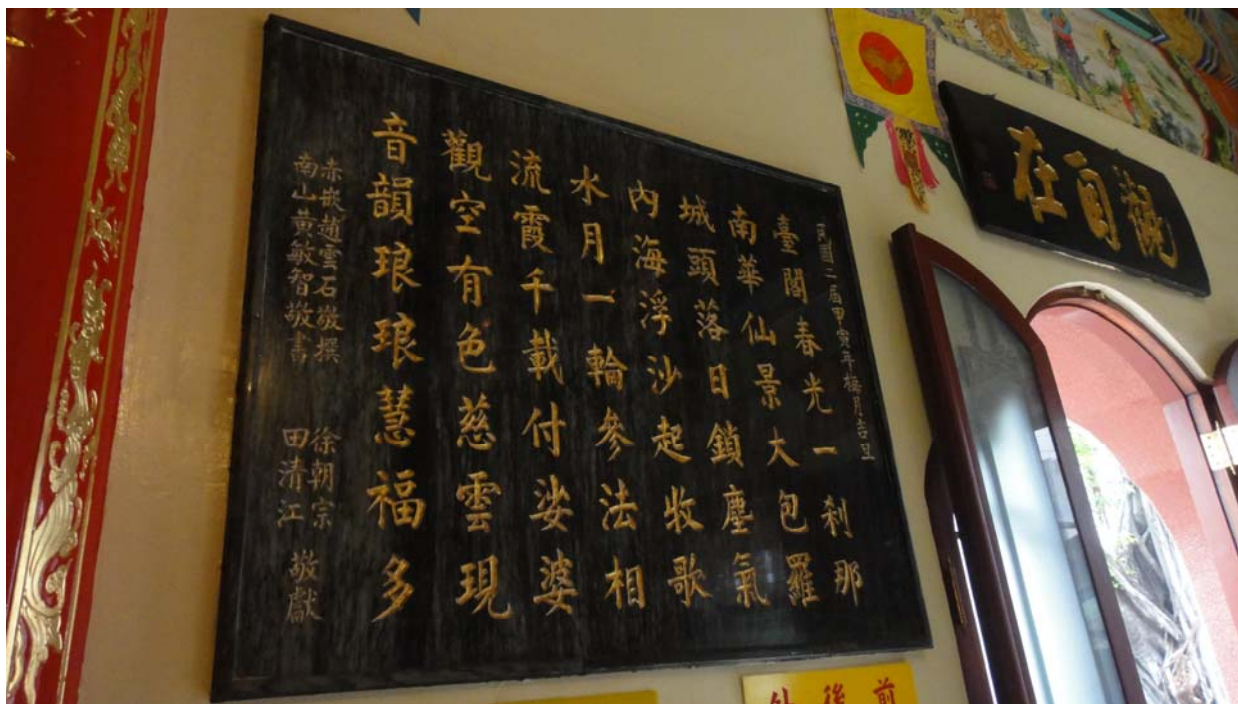 民國二屆甲寅年梅月吉旦
臺閣春光一刹那
南華仙景大包羅
城頭落日鎖塵氣
內海浮沙起收歌
水月一輪參法相
流霞千載付娑婆
觀空有色慈雲現
音韻琅琅慧福多
赤嵌趙雲石敬撰
南山黃敏智敬書
徐朝宗
田清江
敬獻
觀自在
前後